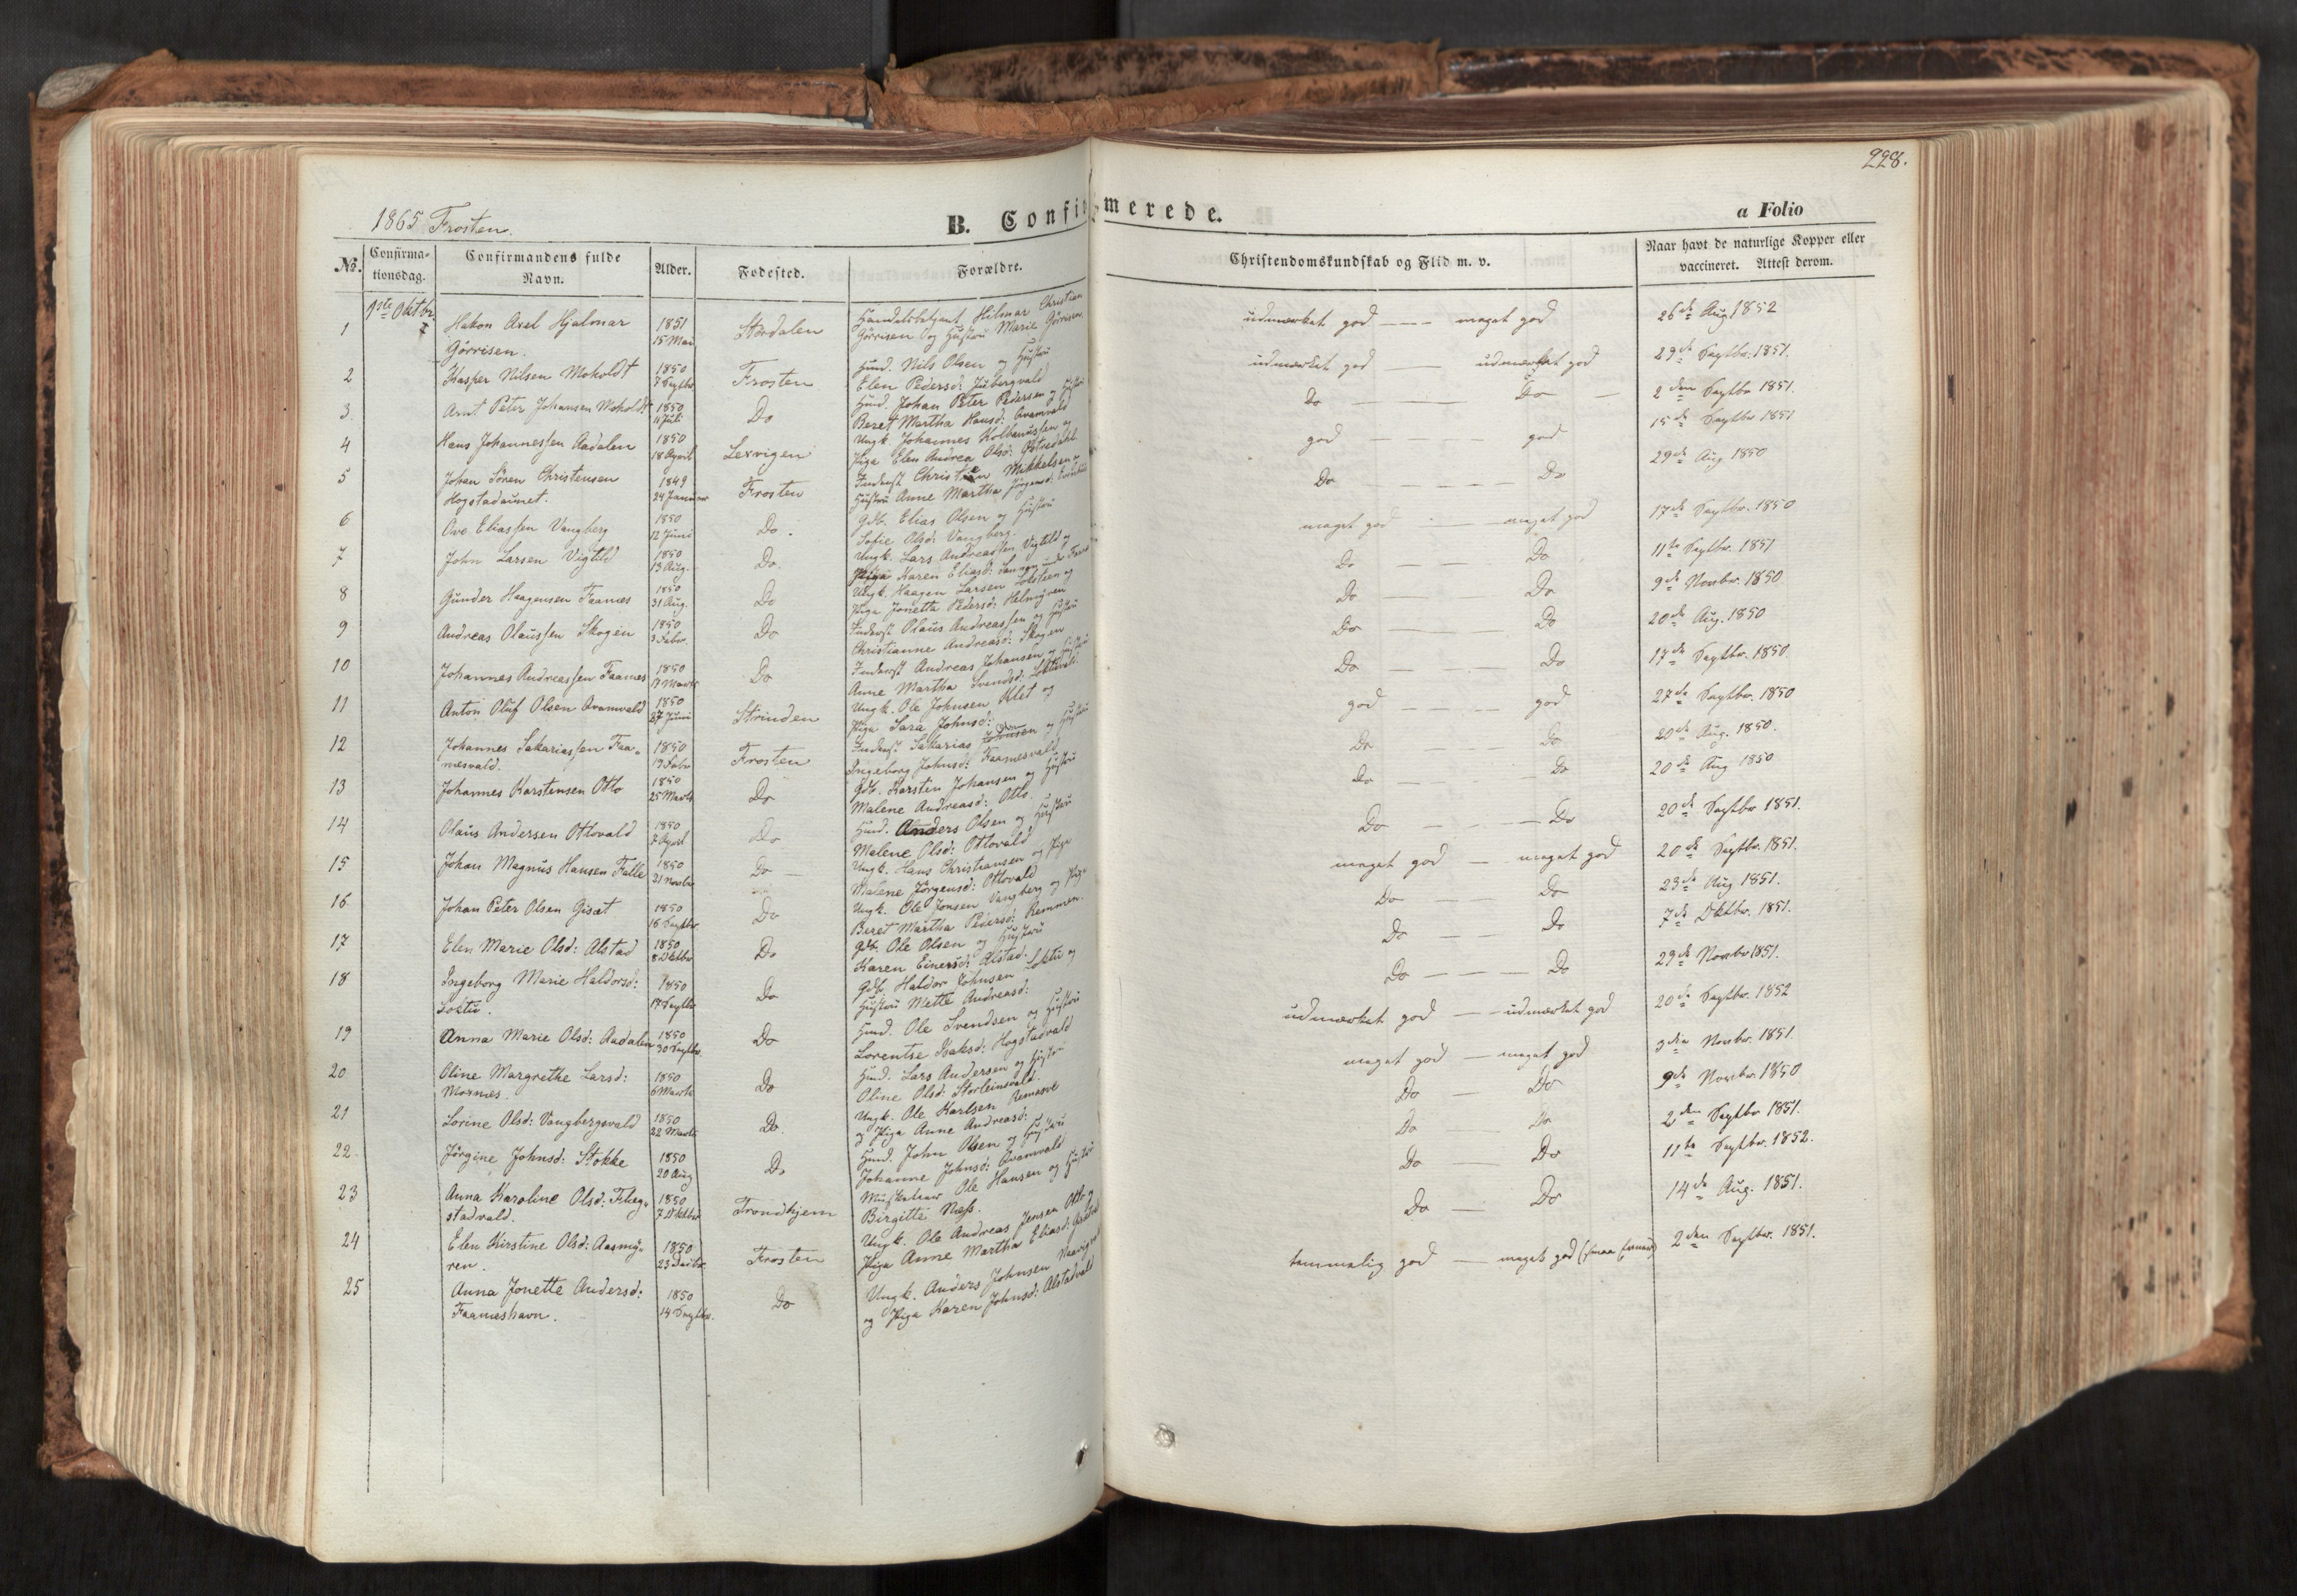 228.
1865 Frosten.
B. Confirmerede.
a Folio
No. Confirma-tionsdag. Confirmandens fulde Navn. Alder. Fødested. Forældre. Christendomskundskab og Flid m. v. Naar havt de naturlige Kopper eller vaccineret. Attest derom.
1ste Oktbr.
1 Hakon Axel Hjalmar 1851 Størdalen Handelsbetjent Hilmar Christian udmærket god — — — meget god 26de Aug 1852
Görrisen. 15 Mai Görrisen og Hustru Marie Görrisen
2 Kasper Nilsen Moholdt 1850 Frosten Huusd. Nils Olsen og Hustru udmærket god — — udmærket god 29de Septbr. 1851.
7 Septbr Elen Pedersd:
3 Arnt Peter Johansen Moholdt 1850 Do Huusd. Johan Peter Pedersen og Hustru Do — — — Do — 2den Septbr 1851.
11 Juli Beret Martha Hansd: Qvamvald
4 Hans Johannessen Aadalen 1850 Lexvigen Ungk. Johannes Kolbanussen og god — — — god 15de Septbr 1851
18 April Pige Elen Andrea Olsd:
5 Johan Sören Christensen 1849 Frosten Inderst Christian Mikkelsen og Do — — — Do 29de Aug 1850
Hogstadaunet. 24 Januar Hustru Anne Martha Jörgensd:
6 Ove Eliassen Vangberg 1850 Do. Gdb. Elias Olsen og Hustru meget god — — meget god 17de Septbr. 1850
12 Juni Sofie Olsd: Vangberg.
7 John Larsen Vigtild 1850 Do Ungk. Lars Andreassen Vigtild og Do — — Do 11te Septbr. 1851
13 Aug. Pige Karen Eliasd:
8 Gunder Haagensen Faanes 1850 Do Ungk. Haagen Larsen og Do — — Do 9de Novbr. 1850
31 Aug. Pige Jonetta Pedersd: Helmyren
9 Andreas Olaussen Skogen 1850 Do Inderst Olaus Andreassen og Hustru Do — — Do 20de Aug. 1850
3 Febr. Christianne Andreasd: Skogen
10 Johannes Andreassen Faanes 1850 Do Inderst Andreas Johansen og Hustru Do — — Do 17de Septbr. 1850.
17 Marts Anne Martha Svendsd:
11 Anton Oluf Olsen Qvamvald 1850 Strinden Ungk. Ole Johnsen Klet og god — — — god 27de Septbr. 1850
27 Juni Pige Sara Johnsd:
12 Johannes Sakariassen Faa- 1850 Frosten Inderst Sakarias og Hustru Do — — — Do 20de Aug. 1850.
nesvald. 19 Febr Ingeborg Johnsd: Faanesvald
13 Johannes Karstensen Otlo 1850 Do Gdb. Karsten Johansen og Hustru Do — — — Do 20de Aug 1850
25 Marts Malene Andreasd: Otlo.
14 Olaus Andersen Otlovald 1850 Do Huusd. Anders Olsen og Hustru Do — — — Do 20de Septbr 1851.
7 April Malene Olsd: Otlovald
15 Johan Magnus Hansen Falle 1850 Do — Ungk. Hans Christiansen og Pige meget god — meget god 20de Septbr. 1851.
21 Novbr Malene Jörgensd: Otlovald
16 Johan Peter Olsen 1850 Do Ungk. Ole Jonsen Vangberg og Pige Do — — Do 23de Aug 1851.
16 Septbr. Beret Martha Pedersd: Remmen.
17 Elen Marie Olsd: Alstad 1850 Do Gdb. Ole Olsen og Hustru Do — — Do 7de Oktbr. 1851.
8 Oktbr Karen Einersd: Alstad.
18 Ingeborg Marie Haldorsd: 1850 Do Gdb. Haldor Johnsen Loktu og Do — — — Do 29de Novbr 1851.
Loktu. 17 Septbr Hustru Mette Andreasd:
19 Anna Marie Olsd: Aadalen 1850 Do Huusd. Ole Svendsen og Hustru udmærket god — — udmærket god 20de Septbr. 1852
30 Septbr. Lorentse Isaksd: Hogstadvald
20 Oline Margrethe Larsd: 1850 Do Huusd. Lars Andersen og Hustru meget god — meget god 3die Novbr. 1851.
Mornes. 6 Marts Oline Olsd:
21 Lorine Olsd: Vangbergsvald 1850 Do. Ungk. Ole Karlsen Do — Do 9de Novbr. 1850
22 Marts og Pige Anne Andreasd:
22 Jörgine Johnsd: Stokke 1850 Do Huusd. John Olsen og Hustru Do — Do 2den Septbr 1851.
20 Aug Johanne Johnsd: Qvamvald
23 Anna Karoline Olsd: Flag- 1850 Trondhjem Musketeer Ole Hansen og Hustru Do — Do 11te Septbr. 1852.
stadvald. 7 Oktbr Birgitte Næss.
24 Elen Kirstine Olsd: Aasmy- 1850 Frosten Ungk. Ole Andreas Jensen Otlo og Do — Do 14de Aug. 1851.
ren. 23 Decbr. Pige Anne Martha Eliasd:
25 Anna Jonette Andersd: 1850 Do Ungk. Anders Johnsen temmelig god — meget god 2den Septbr. 1851.
Faaneshavn. 14 Septbr. og Pige Karen Johnsd: Alstadvald